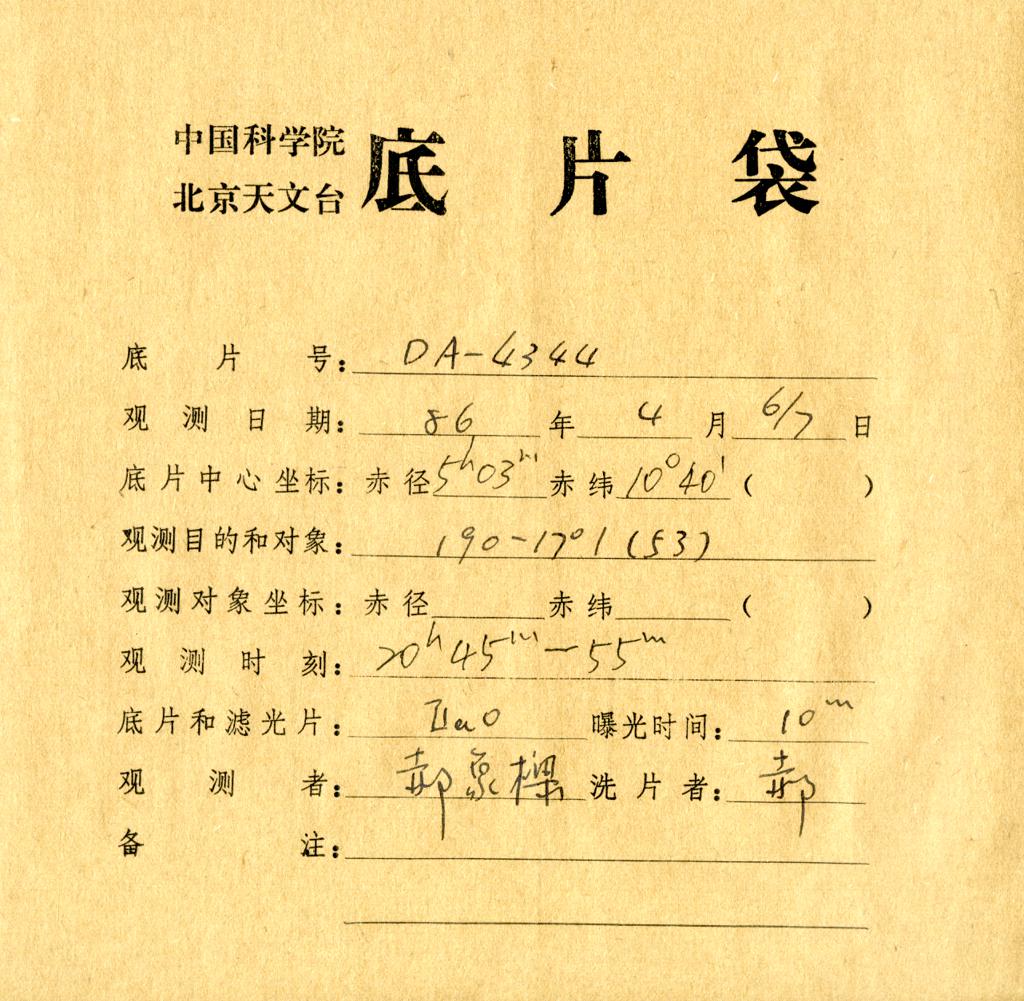 中国科学院
北京天文台 底片袋
底片号：DA-4344
观测日期：86年4月6/7日
底片中心坐标：赤径5ʰ03ᵐ赤纬10°40′（ ）
观测目的和对象：190-17°1(53)
观测对象坐标：赤径 赤纬 （ ）
观测时刻：20ʰ45ᵐ-55ᵐ
底片和滤光片：IIaO 曝光时间：10ᵐ
观测者：郝象樑 洗片者：郝
备注：